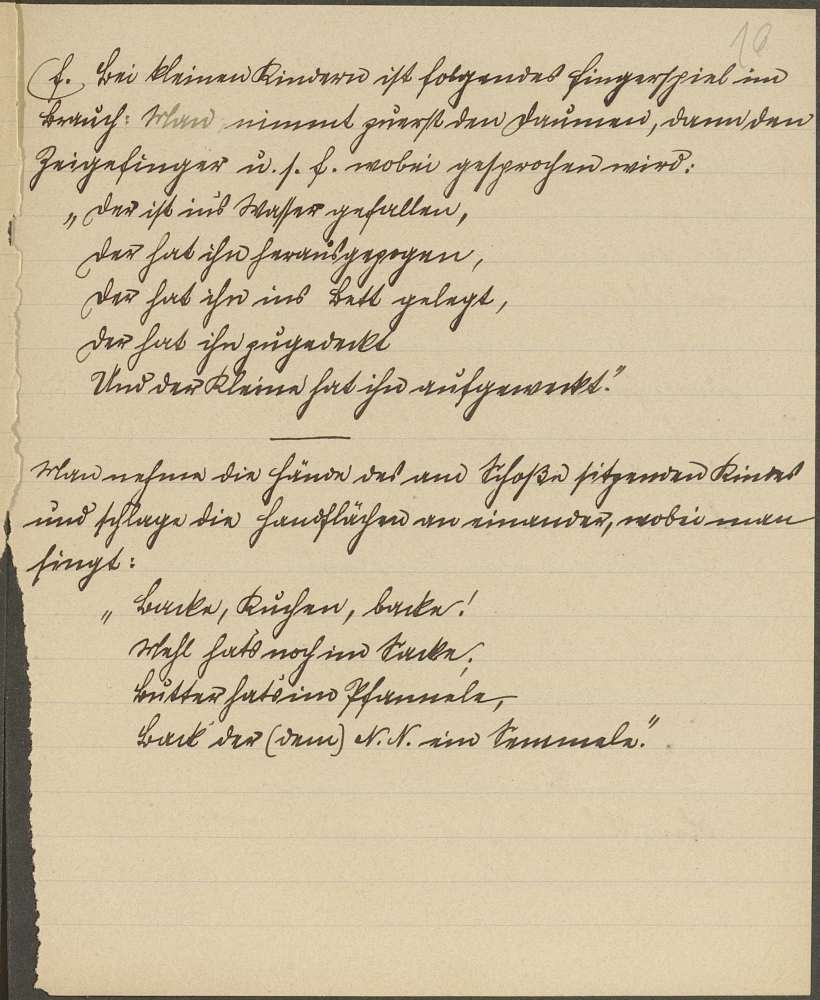 10
f. Bei kleinen Kindern ist folgendes Fingerspiel im
Brauch: Man nimmt zuerst den Daumen, dann den
Zeigefinger u. s. f. wobei gesprochen wird:
„Der ist ins Wasser gefallen,
Der hat ihn herausgezogen,
Der hat ihn ins Bett gelegt,
Der hat ihn zugedeckt
Und der Kleine hat ihn aufgeweckt."
Man nehme die Hände des am Schoße sitzenden Kindes
und schlage die Handflächen an einander, wobei man
singt:
„Backe, Kuchen, backe!
Mehl hat's noch im Sacke,
Butter hat's im Pfannele,
Back' der (dem) N. N. ein Semmele."